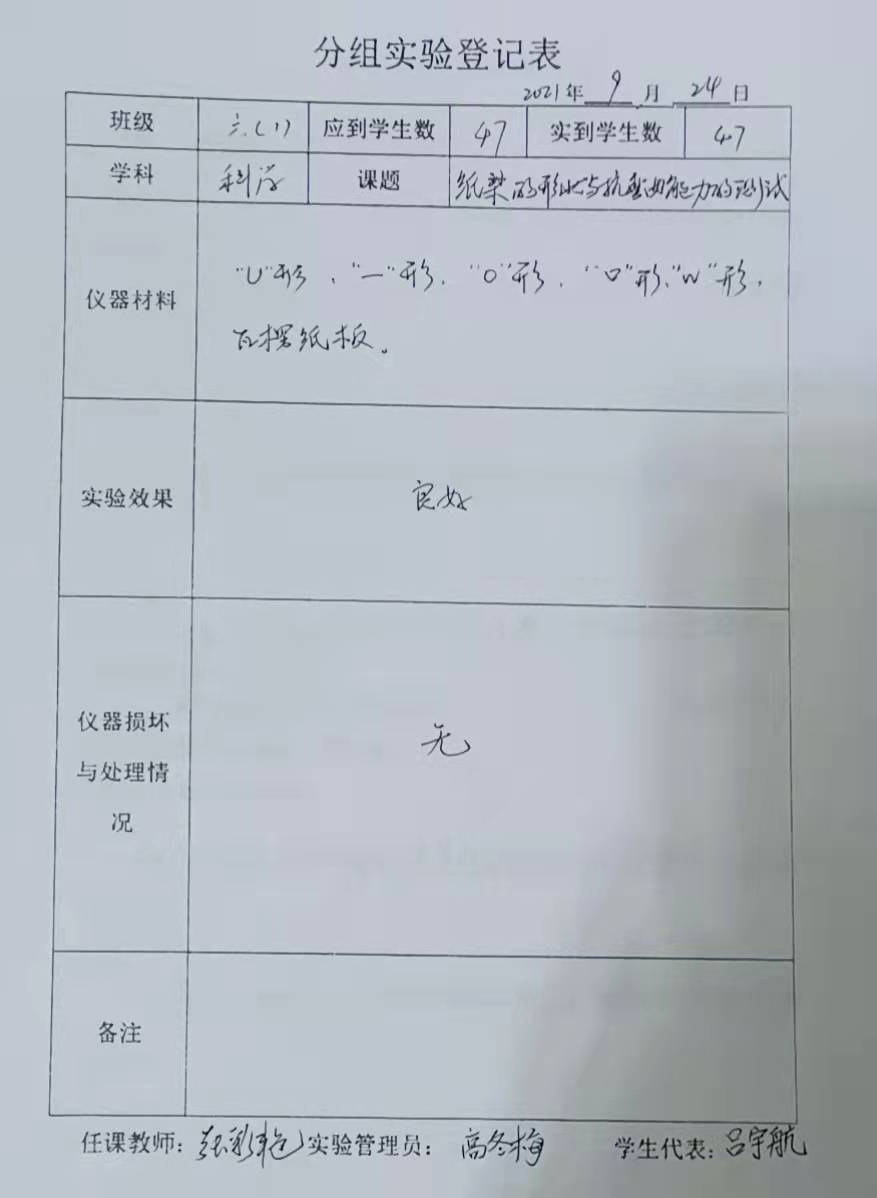 分组实验登记表
2021年 9 月 24 日
班级 六(1) 应到学生数 47 实到学生数 47
学科 科学 课题 纸梁的形状与抗弯曲能力的测试
仪器材料 "U"形、"一"形、"O"形、"口"形、"W"形、
瓦楞纸板。
实验效果 良好
仪器损坏 无
与处理情
况
备注
任课教师: 实验管理员: 高冬梅 学生代表: 吕宇航